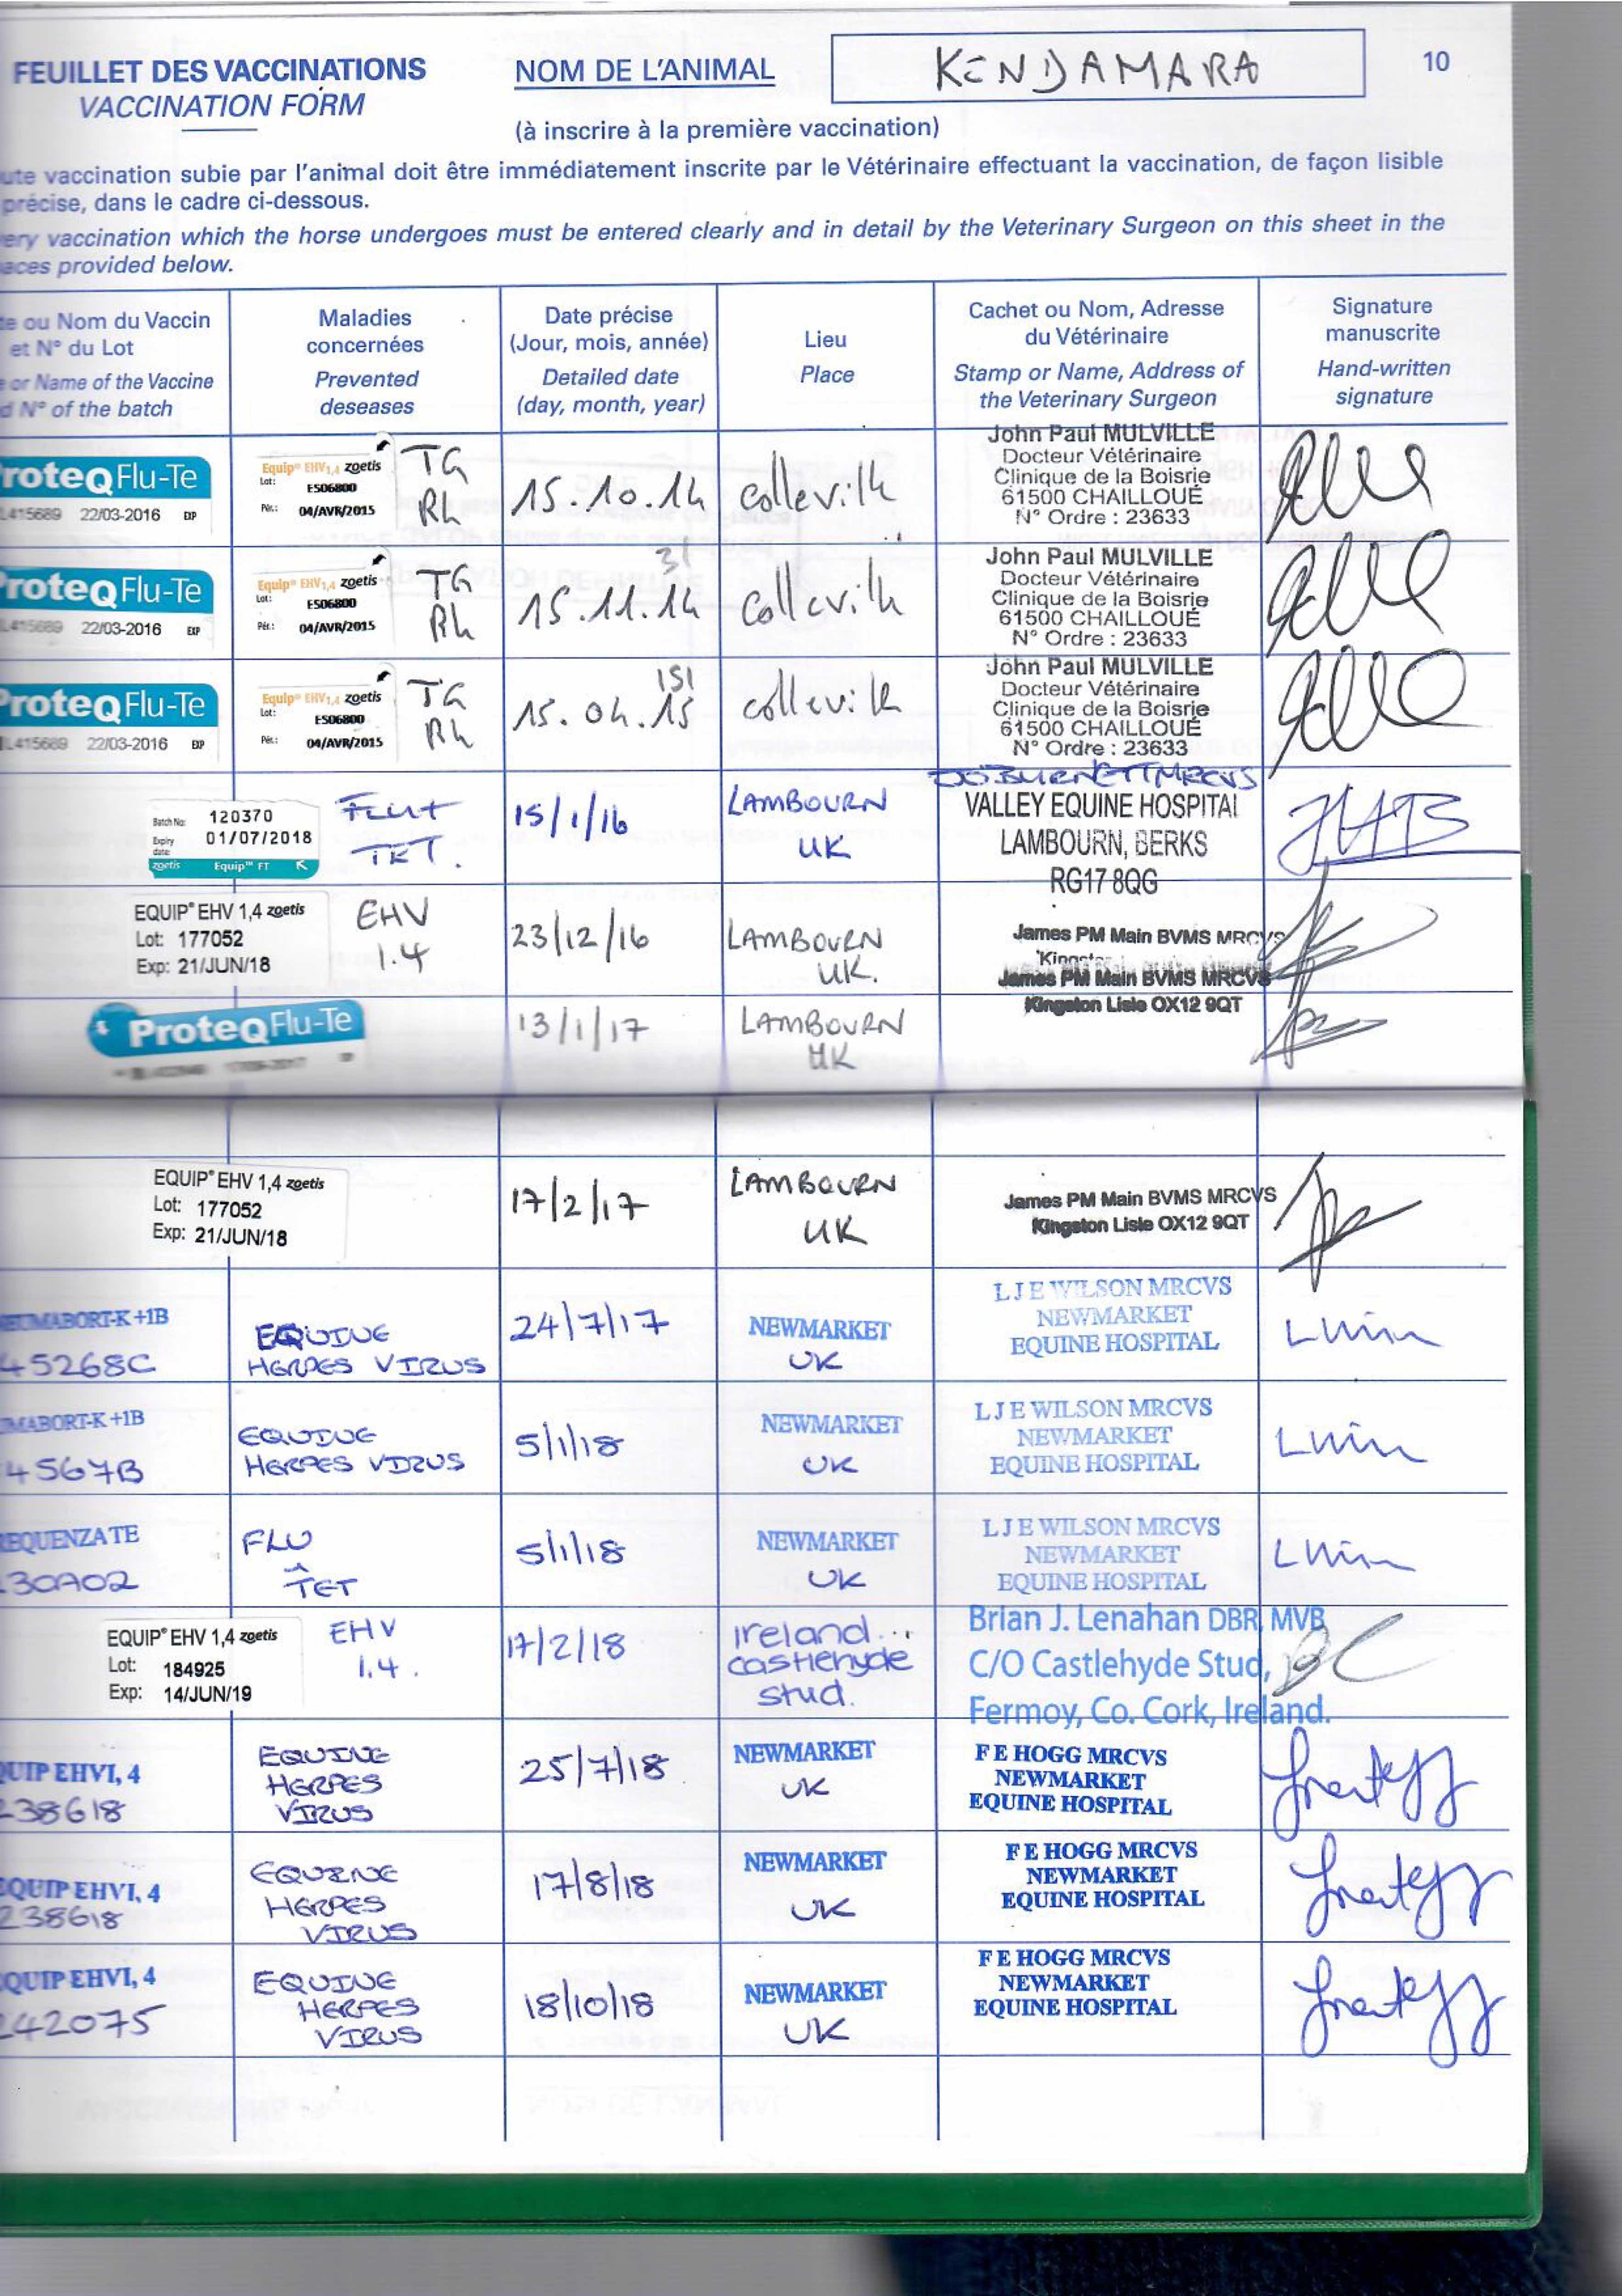 FEUILLET DES VACCINATIONS
VACCINATION FORM
NOM DE L'ANIMAL
KENDAMARA
10
(à inscrire à la première vaccination)
ute vaccination subie par l'animal doit être immédiatement inscrite par le Vétérinaire effectuant la vaccination, de façon lisible
précise, dans le cadre ci-dessous.
ery vaccination which the horse undergoes must be entered clearly and in detail by the Veterinary Surgeon on this sheet in the
aces provided below.
e ou Nom du Vaccin
et N° du Lot
or Name of the Vaccine
d N° of the batch
Maladies
concernées
Prevented
deseases
Date précise
(Jour, mois, année)
Detailed date
(day, month, year)
Lieu
Place
Cachet ou Nom, Adresse
du Vétérinaire
Stamp or Name, Address of
the Veterinary Surgeon
Signature
manuscrite
Hand-written
signature
roteqFlu-Te
L415689 22/03-2016 EXP
Equip® EHV1,4 zoetis
Lot: ES06800
Pér.: 04/AVR/2015
TG
Rh
15.10.14
Colleville
John Paul MULVILLE
Docteur Vétérinaire
Clinique de la Boisrie
61500 CHAILLOUÉ
N° Ordre : 23633
roteqFlu-Te
L415689 22/03-2016 EXP
Equip® EHV1,4 zoetis
Lot: ES06800
Pér.: 04/AVR/2015
TG
Rh
31
15.11.14
Colleville
John Paul MULVILLE
Docteur Vétérinaire
Clinique de la Boisrie
61500 CHAILLOUÉ
N° Ordre : 23633
roteqFlu-Te
L415689 22/03-2016 EXP
Equip® EHV1,4 zoetis
Lot: ES06800
Pér.: 04/AVR/2015
TG
Rh
151
15.04.15
Colleville
John Paul MULVILLE
Docteur Vétérinaire
Clinique de la Boisrie
61500 CHAILLOUÉ
N° Ordre : 23633
Batch No: 120370
Expiry date: 01/07/2018
zoetis Equip™ FT
FLU+
TET.
15/1/16
LAMBOURN
UK
BURNETT MRCVS
VALLEY EQUINE HOSPITAL
LAMBOURN, BERKS
RG17 8QG
EQUIP® EHV 1,4 zoetis
Lot: 177052
Exp: 21/JUN/18
EHV
1.4
23/12/16
LAMBOURN
UK.
James PM Main BVMS MRCVS
ProteqFlu-Te
13/1/17
LAMBOURN
UK
James PM Main BVMS MRCVS
Kingston Lisle OX12 9QT
EQUIP® EHV 1,4 zoetis
Lot: 177052
Exp: 21/JUN/18
17/2/17
LAMBOURN
UK
James PM Main BVMS MRCVS
Kingston Lisle OX12 9QT
EUMABORT-K +1B
45268C
EQUINE
HERPES VIRUS
24/7/17
NEWMARKET
UK
L J E WILSON MRCVS
NEWMARKET
EQUINE HOSPITAL
MABORT-K +1B
4567B
EQUINE
HERPES VIRUS
5/1/18
NEWMARKET
UK
L J E WILSON MRCVS
NEWMARKET
EQUINE HOSPITAL
EQUENZA TE
30A02
FLU
TET
5/1/18
NEWMARKET
UK
L J E WILSON MRCVS
NEWMARKET
EQUINE HOSPITAL
EQUIP® EHV 1,4 zoetis
Lot: 184925
Exp: 14/JUN/19
EHV
1.4.
17/2/18
Ireland
castlehyde
stud.
Brian J. Lenahan DBR, MVB
C/O Castlehyde Stud,
Fermoy, Co. Cork, Ireland.
QUIP EHVI, 4
238618
EQUINE
HERPES
VIRUS
25/7/18
NEWMARKET
UK
F E HOGG MRCVS
NEWMARKET
EQUINE HOSPITAL
EQUIP EHVI, 4
238618
EQUINE
HERPES
VIRUS
17/8/18
NEWMARKET
UK
F E HOGG MRCVS
NEWMARKET
EQUINE HOSPITAL
EQUIP EHVI, 4
242075
EQUINE
HERPES
VIRUS
18/10/18
NEWMARKET
UK
F E HOGG MRCVS
NEWMARKET
EQUINE HOSPITAL